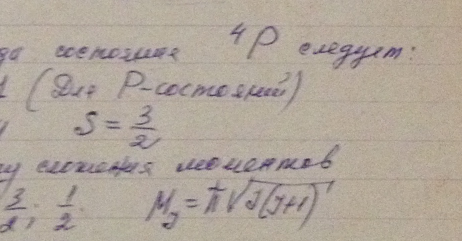 да состояния ⁴P следует:
1 (Для P-состояний)
S = 3/2
у сложения моментов
3/2; 1/2. M_J = ħ√J(J+1)